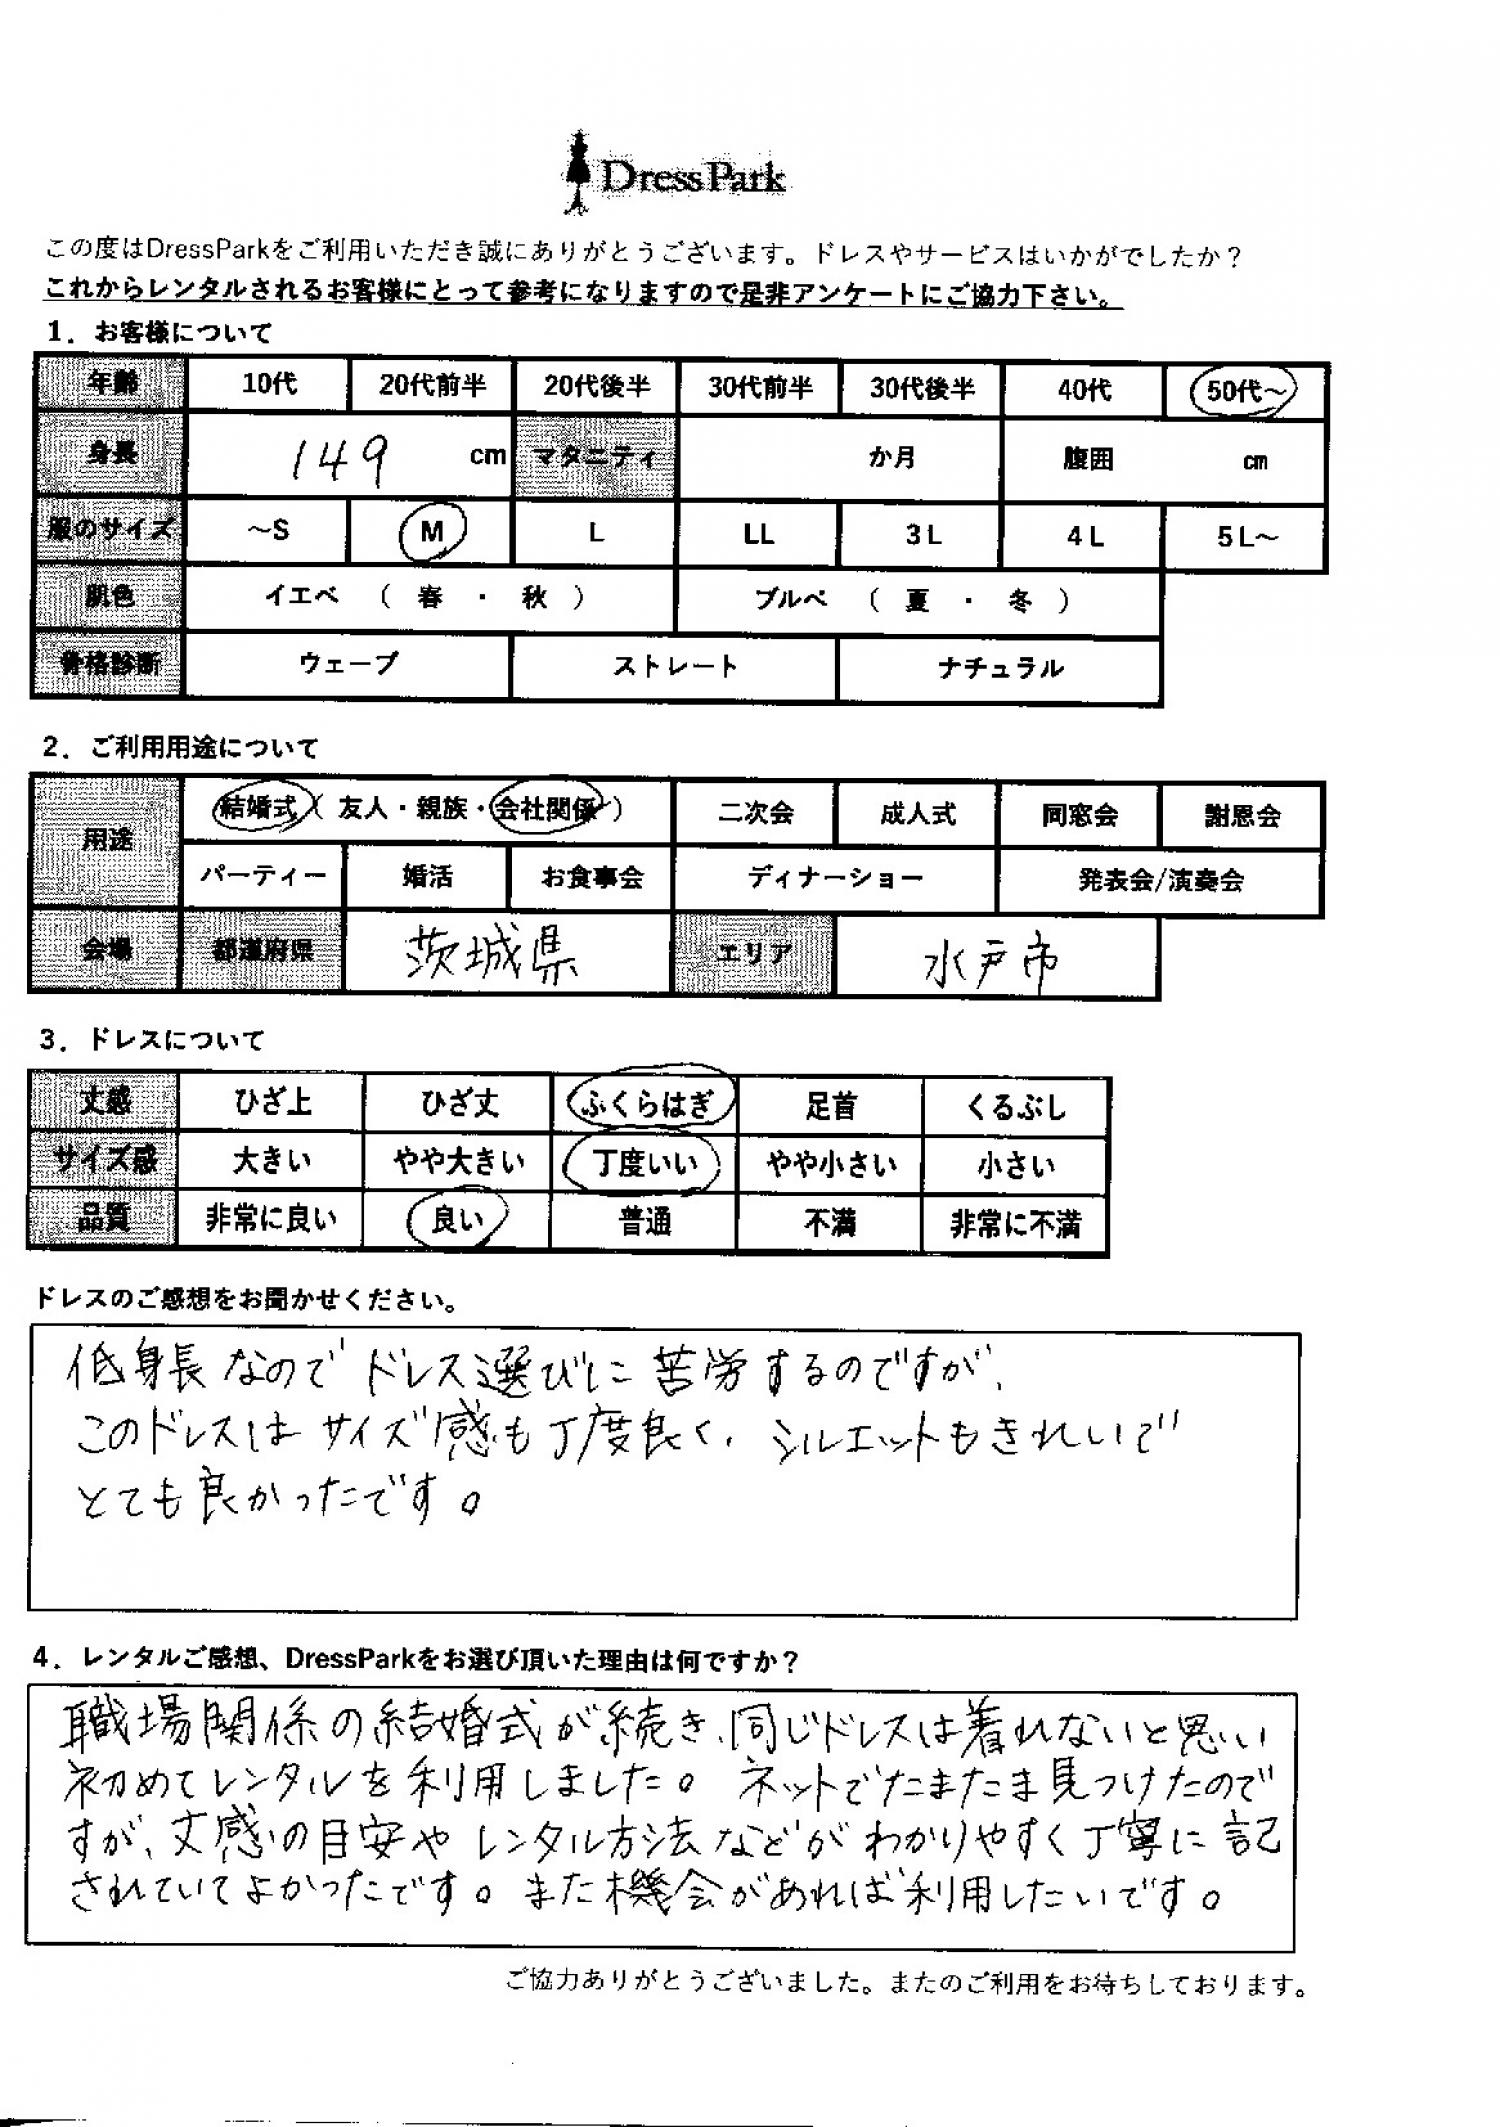 DressPark
この度はDressParkをご利用いただき誠にありがとうございます。ドレスやサービスはいかがでしたか？
これからレンタルされるお客様にとって参考になりますので是非アンケートにご協力下さい。
1．お客様について
年齢 10代 20代前半 20代後半 30代前半 30代後半 40代 50代～
身長 149 cm マタニティ か月 腹囲 cm
服のサイズ ～S M L LL 3L 4L 5L～
肌色 イエベ （ 春 ・ 秋 ） ブルベ （ 夏 ・ 冬 ）
骨格診断 ウェーブ ストレート ナチュラル
2．ご利用用途について
用途 結婚式（ 友人・親族・会社関係 ） 二次会 成人式 同窓会 謝恩会
パーティー 婚活 お食事会 ディナーショー 発表会/演奏会
会場 都道府県 茨城県 エリア 水戸市
3．ドレスについて
丈感 ひざ上 ひざ丈 ふくらはぎ 足首 くるぶし
サイズ感 大きい やや大きい 丁度いい やや小さい 小さい
品質 非常に良い 良い 普通 不満 非常に不満
ドレスのご感想をお聞かせください。
低身長なのでドレス選びに苦労するのですが、
このドレスはサイズ感も丁度良く、シルエットもきれいで
とても良かったです。
4．レンタルご感想、DressParkをお選び頂いた理由は何ですか？
職場関係の結婚式が続き、同じドレスは着れないと思い
初めてレンタルを利用しました。ネットでたまたま見つけたので
すが、丈感の目安やレンタル方法などがわかりやすく丁寧に記
されていてよかったです。また機会があれば利用したいです。
ご協力ありがとうございました。またのご利用をお待ちしております。